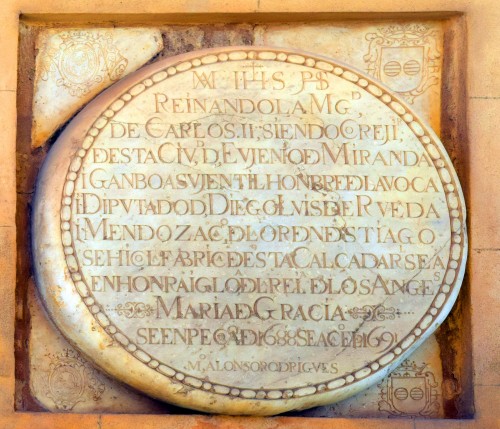 IHS
REINANDO LA MGD,
DE CARLOS.II; SIENDO COREJI.
DESTA CIVD, EVJENIO D MIRANDA
I GANBOA SVJENTILHONBRE D LA VOCA
I DIPVTADO D. DIEGO LVIS DE RVEDA
I MENDOZA C. D LORDN D STIAGO
SE HICO L FABRIC DESTA CALCADA R SEA
EN HONRA I GLO D L REI. D LOS ANGES
MARIA D GRACIA
SE ENPECO A D 1688 SE ACO E D 1691
MO ALONSO RODRIGVES